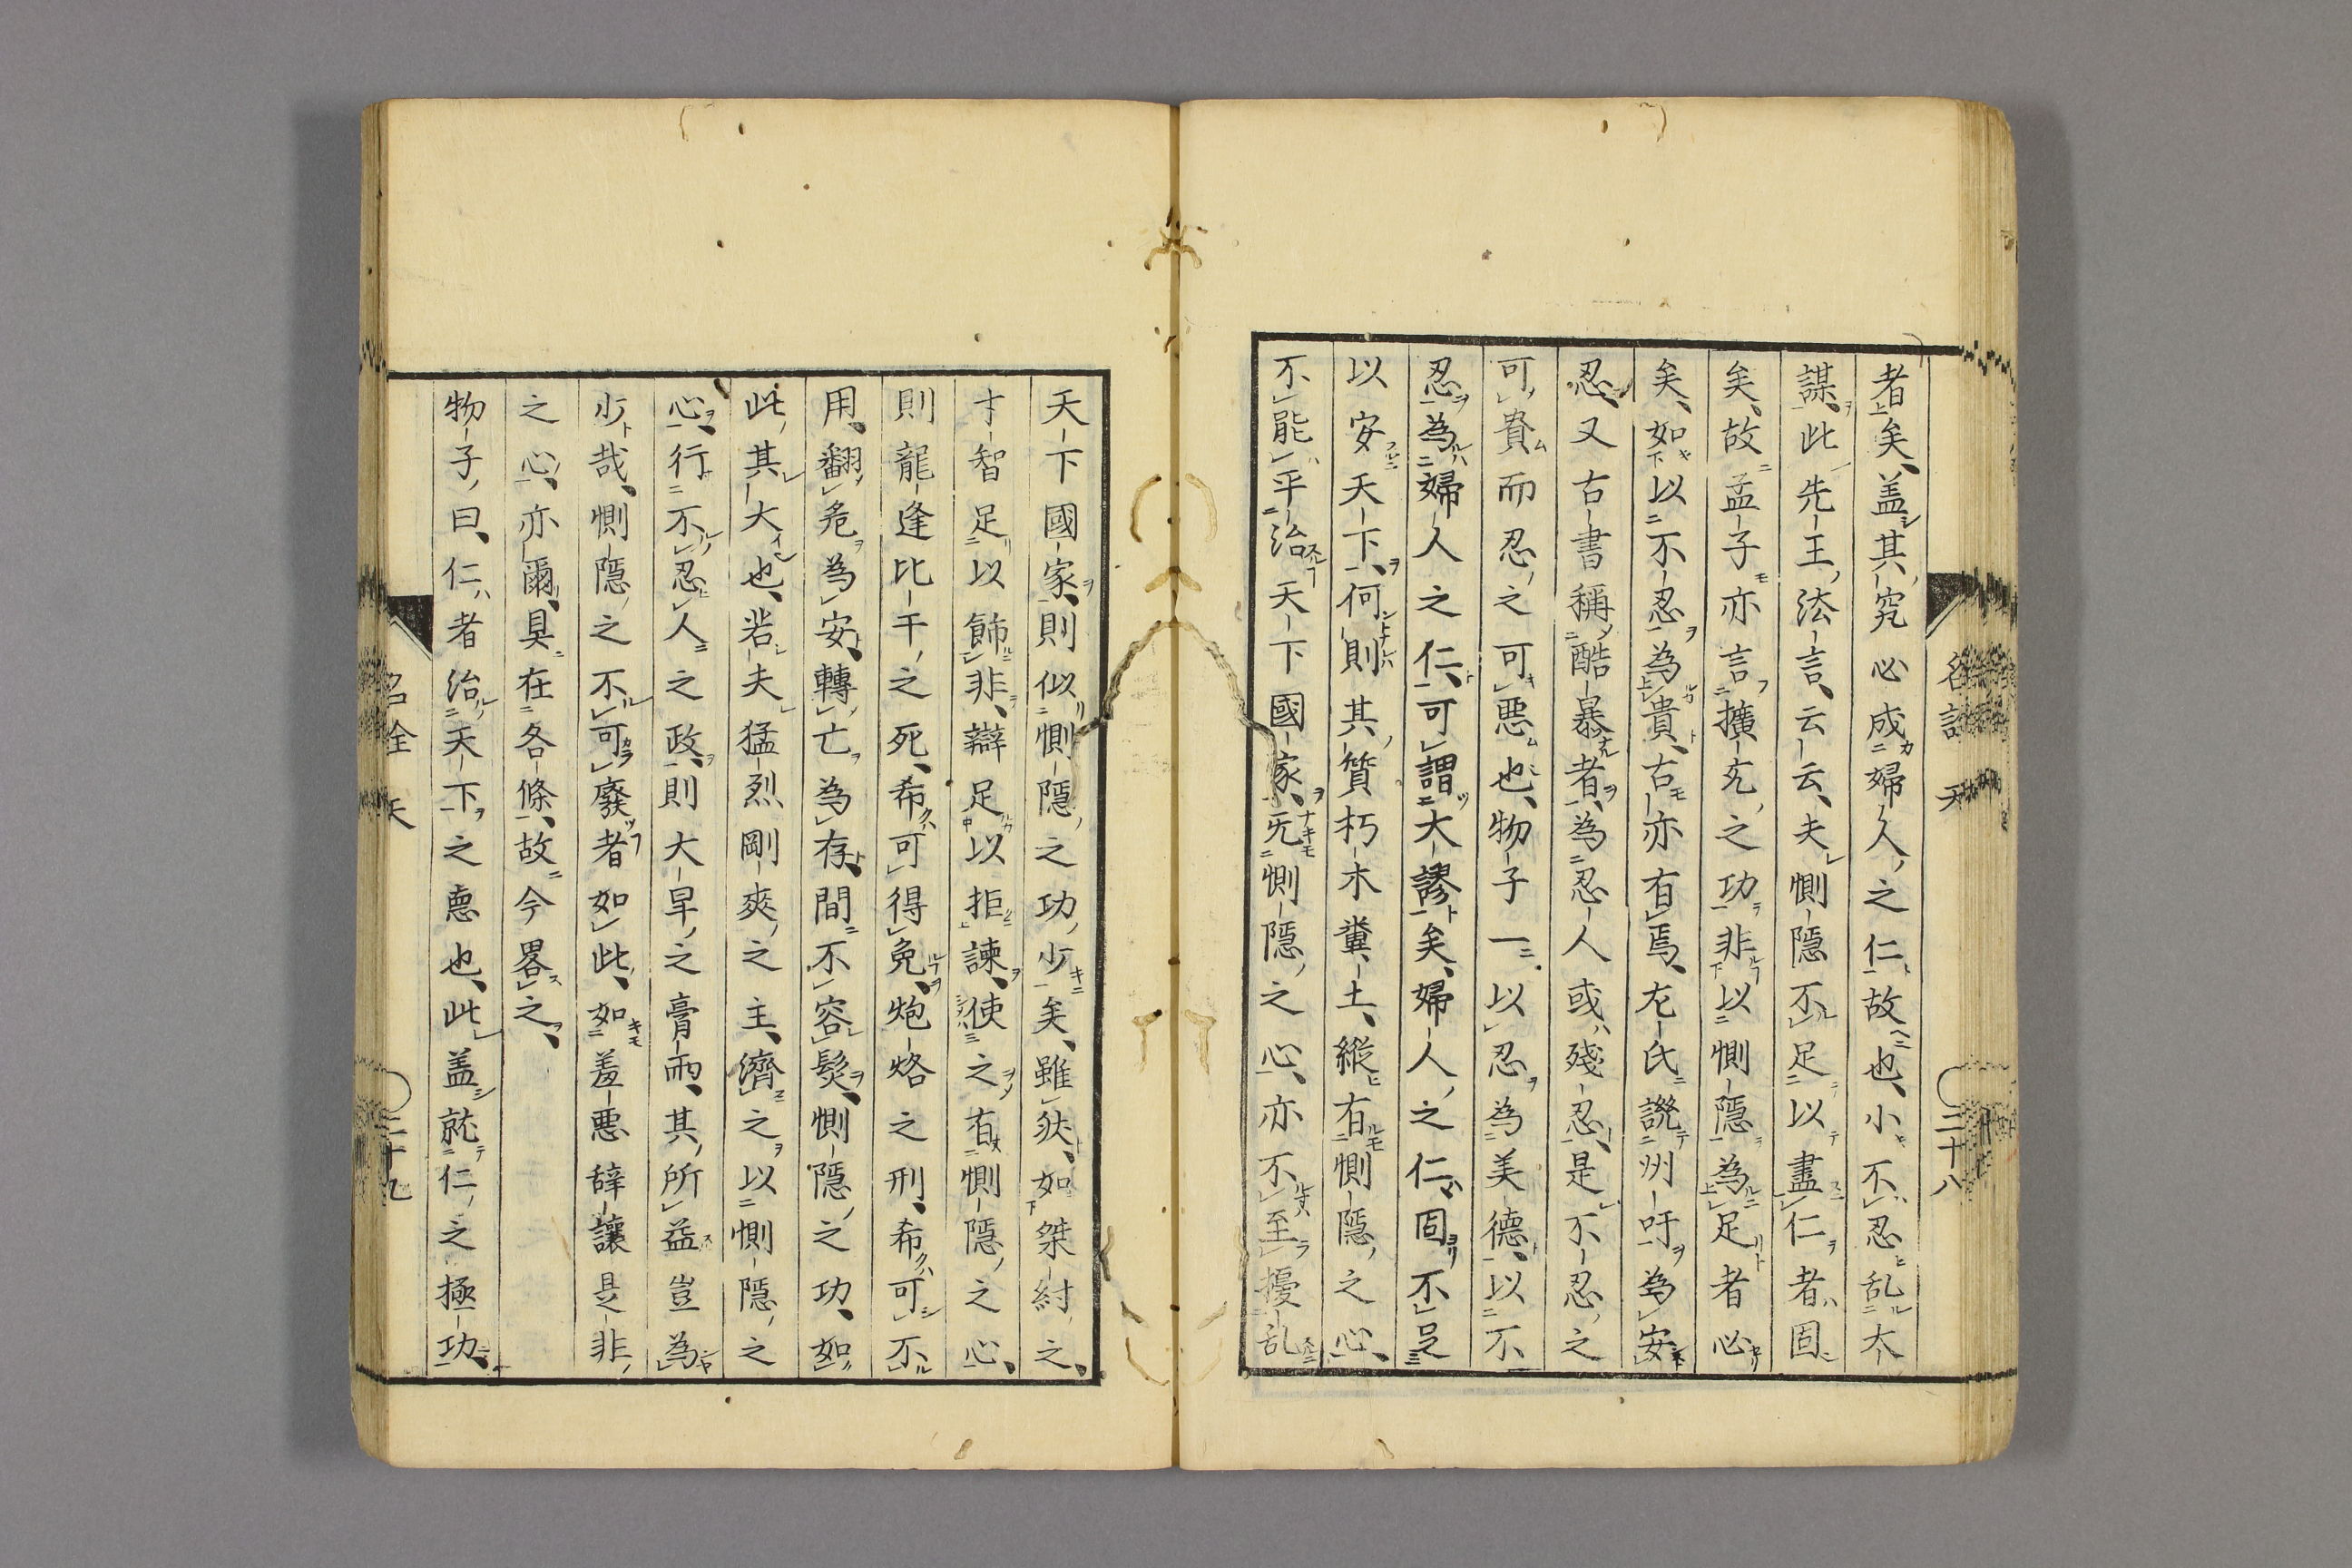 者矣、蓋其究必成婦人之仁故也、小不忍乱大
謀、此先王法言、云云、夫惻隠不足以盡仁者固
矣、故孟子亦言擴充之功非以惻隠為足者必
矣、如以不忍為貴、古亦有焉、左氏説州吁為安
忍、又古書稱酷暴者、為忍人或殘忍、是不忍之
可貴而忍之可悪也、物子一以忍為美德、以不
忍為婦人之仁、可謂大謬矣、婦人之仁固不足
以安天下、何則其質朽木糞土、縱有惻隠之心、
不能平治天下國家、无惻隠之心、亦不至擾乱
名詮 天 三十八
天下國家、則似惻隠之功少矣、雖然、如桀紂之、
才智足以飾非、辯足以拒諫、使之有惻隠之心、
則龍逢比干之死、希可得免、炮烙之刑、希可不
用、翻危為安、轉亡為存、間不容髮、惻隠之功、如
此其大也、若夫猛烈剛爽之主、濟之以惻隠之
心、行不忍人之政、則大旱之膏雨、其所益豈為
少哉、惻隠之不可廢者如此、如羞悪辞讓是非
之心、亦爾、具在各條、故今畧之、
物子曰、仁者治天下之悳也、此蓋就仁之極功、
名詮 天 三十九